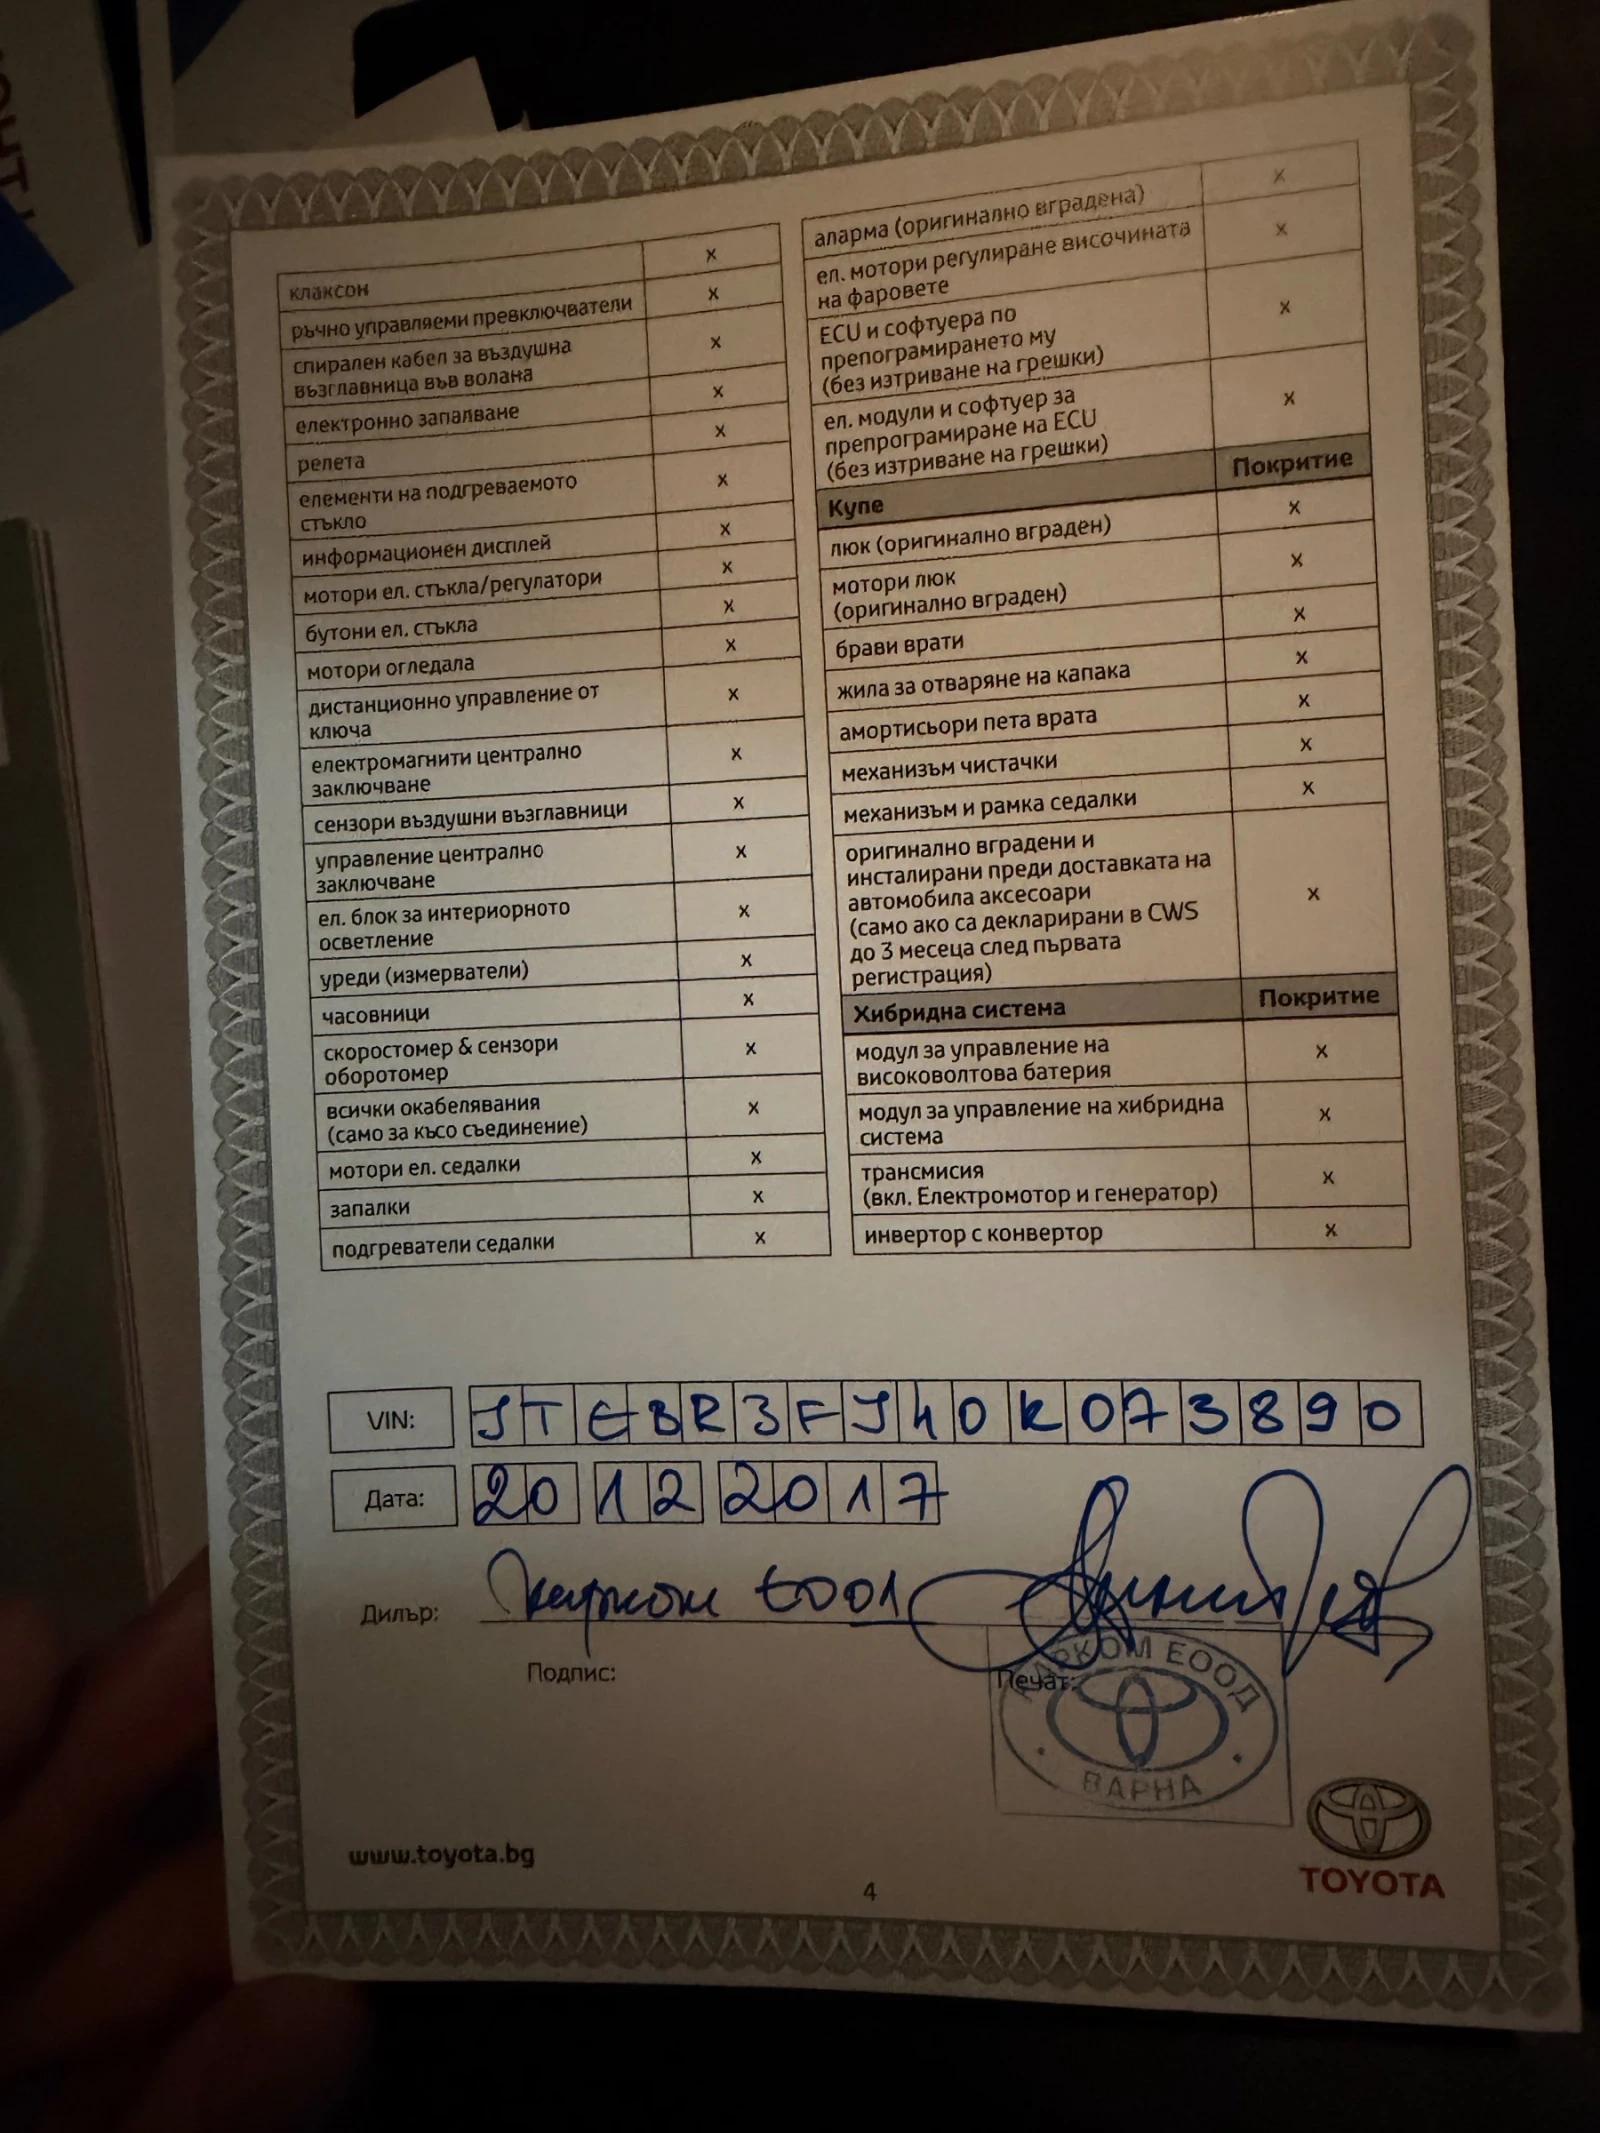 клаксон x
ръчно управляеми превключватели x
спирален кабел за въздушна
възглавница във волана x
електронно запалване x
релета x
елементи на подгреваемото
стъкло x
информационен дисплей x
мотори ел. стъкла/регулатори x
бутони ел. стъкла x
мотори огледала x
дистанционно управление от
ключа x
електромагнити централно
заключване x
сензори въздушни възглавници x
управление централно
заключване x
ел. блок за интериорното
осветление x
уреди (измерватели) x
часовници x
скоростомер & сензори
оборотомер x
всички окабелявания
(само за късо съединение) x
мотори ел. седалки x
запалки x
подгреватели седалки x
аларма (оригинално вградена) x
ел. мотори регулиране височината
на фаровете x
ECU и софтуера по
препограмирането му
(без изтриване на грешки) x
ел. модули и софтуер за
препрограмиране на ECU
(без изтриване на грешки) x
Купе Покритие
люк (оригинално вграден) x
мотори люк
(оригинално вграден) x
брави врати x
жила за отваряне на капака x
амортисьори пета врата x
механизъм чистачки x
механизъм и рамка седалки x
оригинално вградени и
инсталирани преди доставката на
автомобила аксесоари
(само ако са декларирани в CWS
до 3 месеца след първата
регистрация) x
Хибридна система Покритие
модул за управление на
високоволтова батерия x
модул за управление на хибридна
система x
трансмисия
(вкл. Електромотор и генератор) x
инвертор с конвертор x
VIN: JTEBR3FJ40K073890
Дата: 20 12 2017
Дилър:
Подпис: Печат:
ЯРКОМ ЕООД
ВАРНА
www.toyota.bg
4
TOYOTA